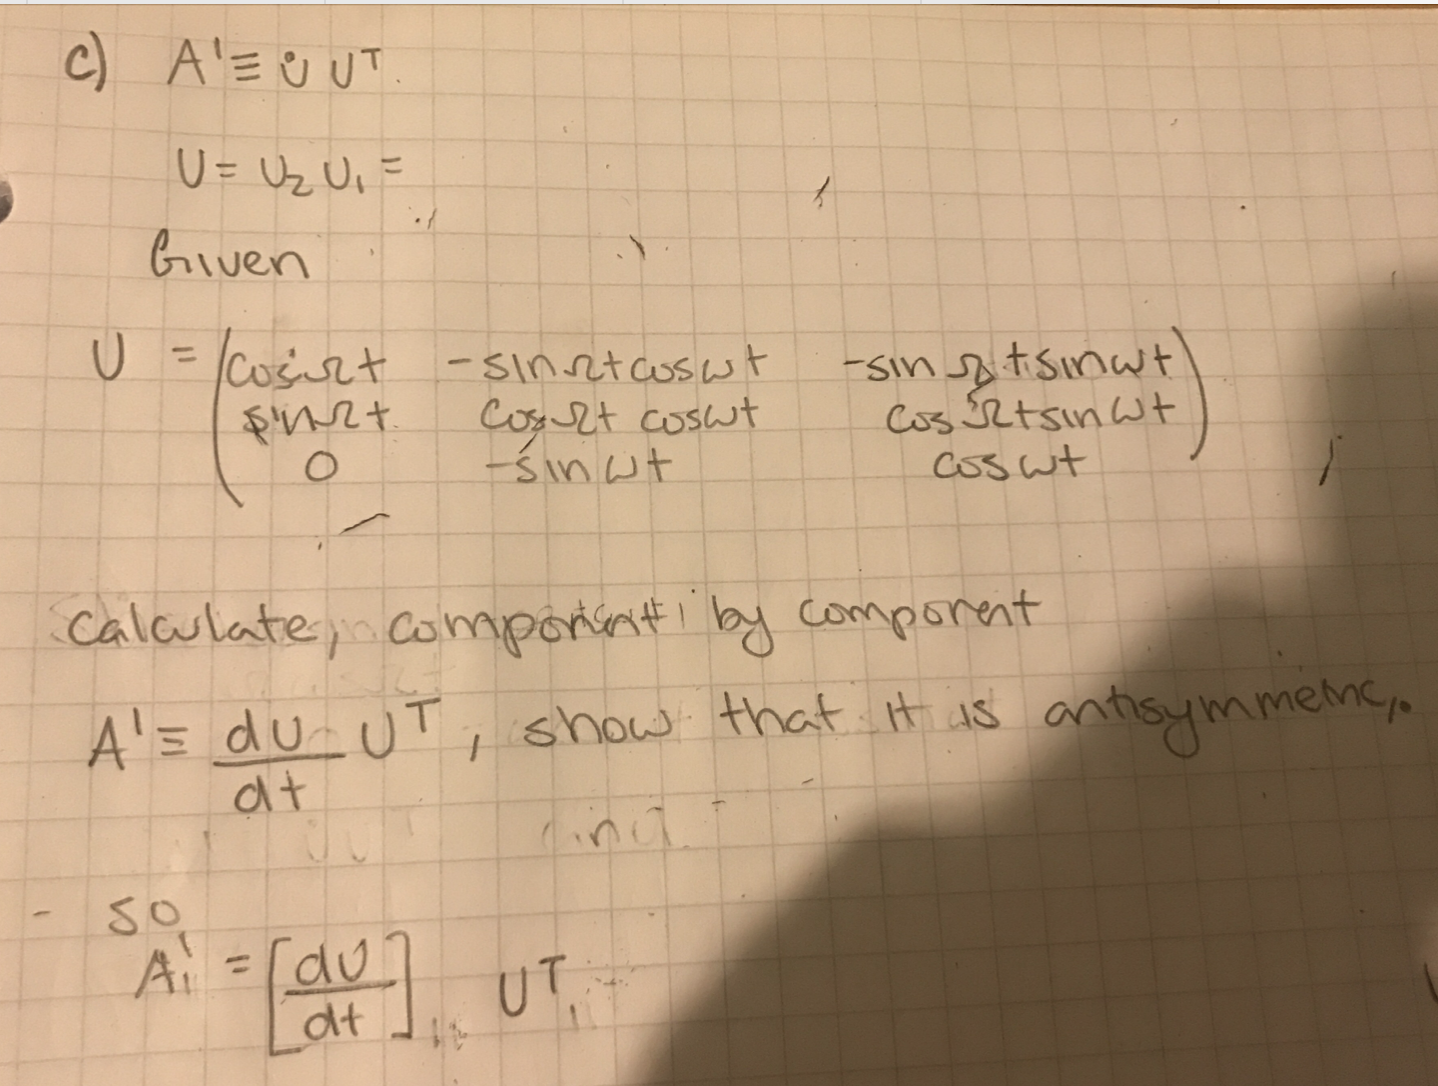 c) A' ≡ U̇ Uᵀ.
U = U₂ U₁ =
Given
U = ( cosΩt   -sinΩt cosωt   -sinΩt sinωt )
sinΩt   cosΩt cosωt   cosΩt sinωt
0   -sinωt   cosωt
Calculate, component by component
A' ≡ dU/dt Uᵀ, show that it is antisymmetric,.
- so
A'₁₁ = [dU/dt]₁₁ Uᵀ₁₁